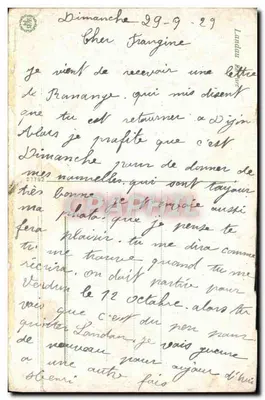 Dimanche 29-9-29
Cher Frangine
je vient de recevoir une lettre
de Ranange qui mis disent
que tu est retourner a Dijon
Alors je profite que c'est
Dimanche pour de donner de
mes nouvelles qui sont toujour
très bonne je t'envoie aussi
ma photo que je pense te
fera plaisir. tu me dira comme
tu me trouve quand tu me
récrira. on doit partire pour
Verdun le 12 Octobre. alors tu
vois que c'est du peu pour
quitter Landau je vois guère
de nouveau pour aujour d'hui
a une autre fois
Henri
Landau